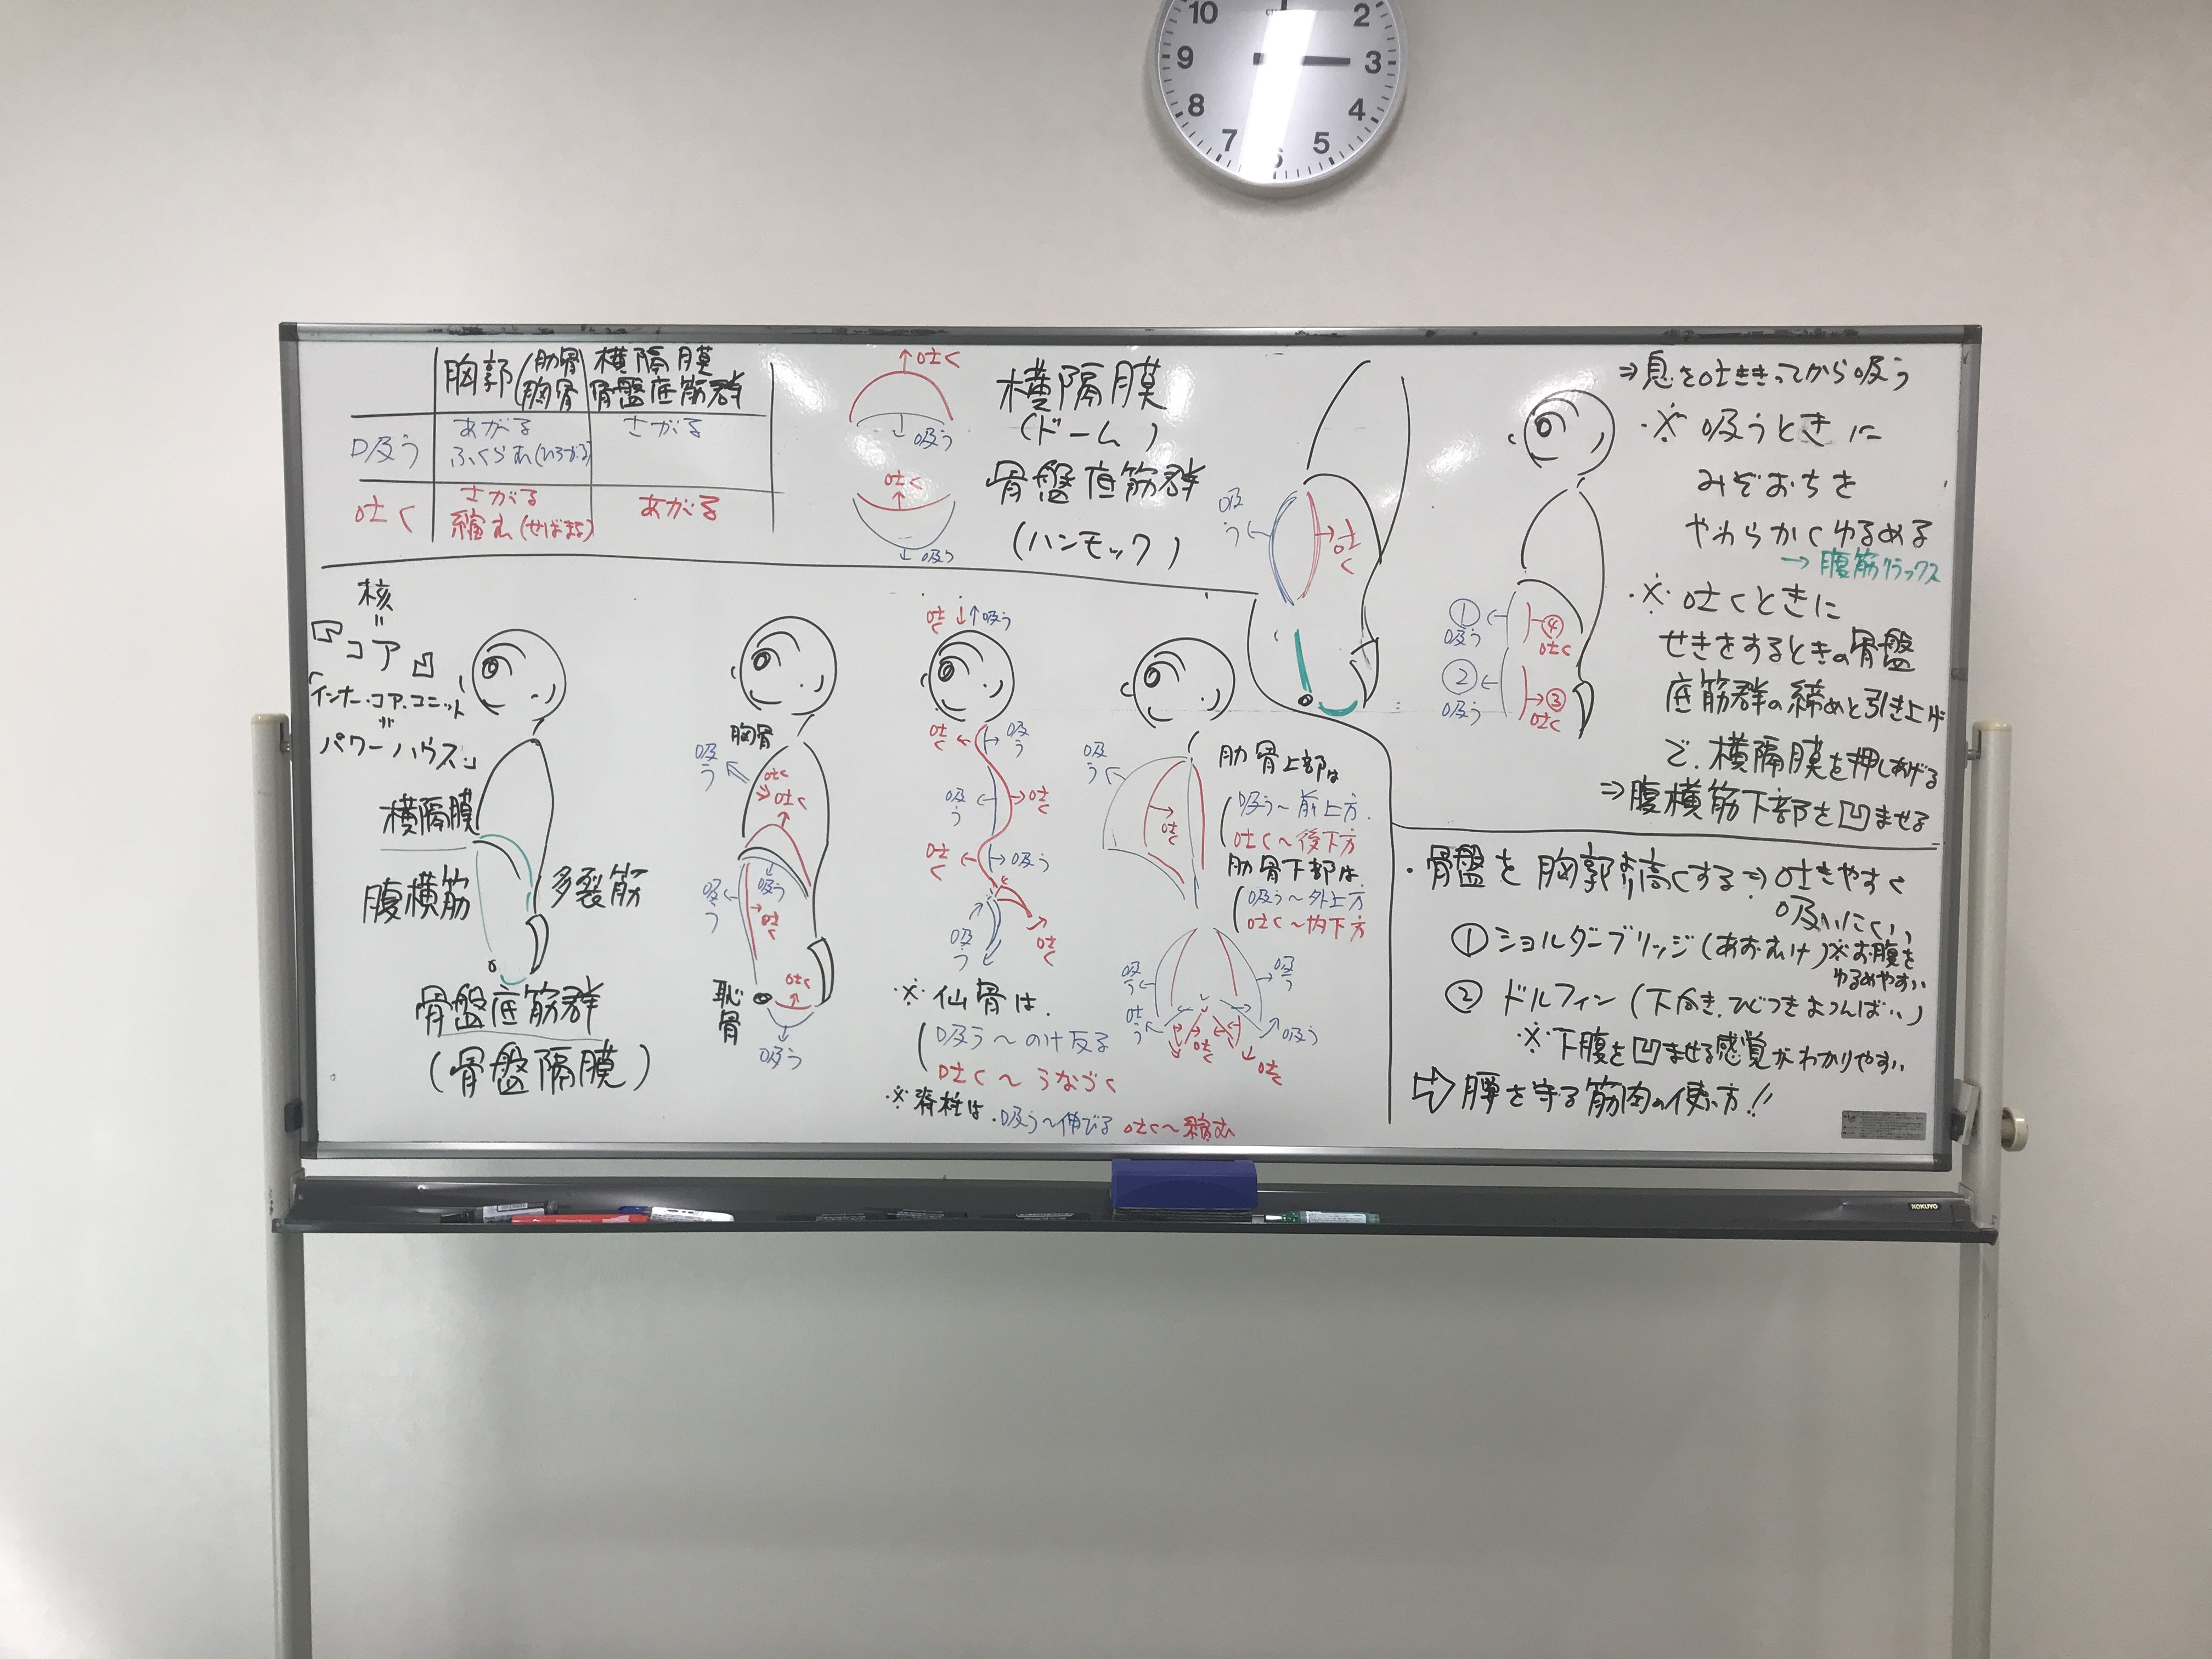 10
2
9
3
8
4
7
5
6
胸郭(肋骨
胸骨
横隔膜
骨盤底筋群
吸う
あがる
ふくらむ(ひろがる)
さがる
吐く
さがる
縮む(せばまる)
あがる
↑吐く
↓吸う
吐く
↑
↓吸う
横隔膜
(ドーム)
骨盤底筋群
(ハンモック)
吸う
吐く
⇒息を吐ききってから吸う
※吸うときに
みぞおちを
やわらかくゆるめる
→腹筋リラックス
※吐くときに
せきをするときの骨盤
底筋群の締めと引き上げ
で、横隔膜を押しあげる
⇒腹横筋下部を凹ませる
①
吸う
④
吐く
②
吸う
③
吐く
核
=
『コア』
「インナー・コア・ユニット
=
パワーハウス」
横隔膜
腹横筋
多裂筋
骨盤底筋群
(骨盤隔膜)
胸骨
吸う
吐く
吐く
吸う
吸う
吐く
恥骨
吐く
吸う
吐く↓↑吸う
吐く
吸う
吸う
吐く
吐く
吸う
吸う
吐く
※仙骨は、
吸う〜のけ反る
吐く〜うなづく
※脊柱は、吸う〜伸びる 吐く〜縮む
吸う
吐く
肋骨上部は
吸う〜前上方
吐く〜後下方
肋骨下部は、
吸う〜外上方
吐く〜内下方
吸う
吸う
吐く
吸う
吐く
・骨盤を胸郭より高くする⇒吐きやすく
吸いにくい
①ショルダーブリッジ(あおむけ)※お腹を
ゆるめやすい
②ドルフィン(下向き、ひじつきよつんばい)
※下腹を凹ませる感覚がわかりやすい
⇨膵を守る筋肉の使い方!!
KOKUYO